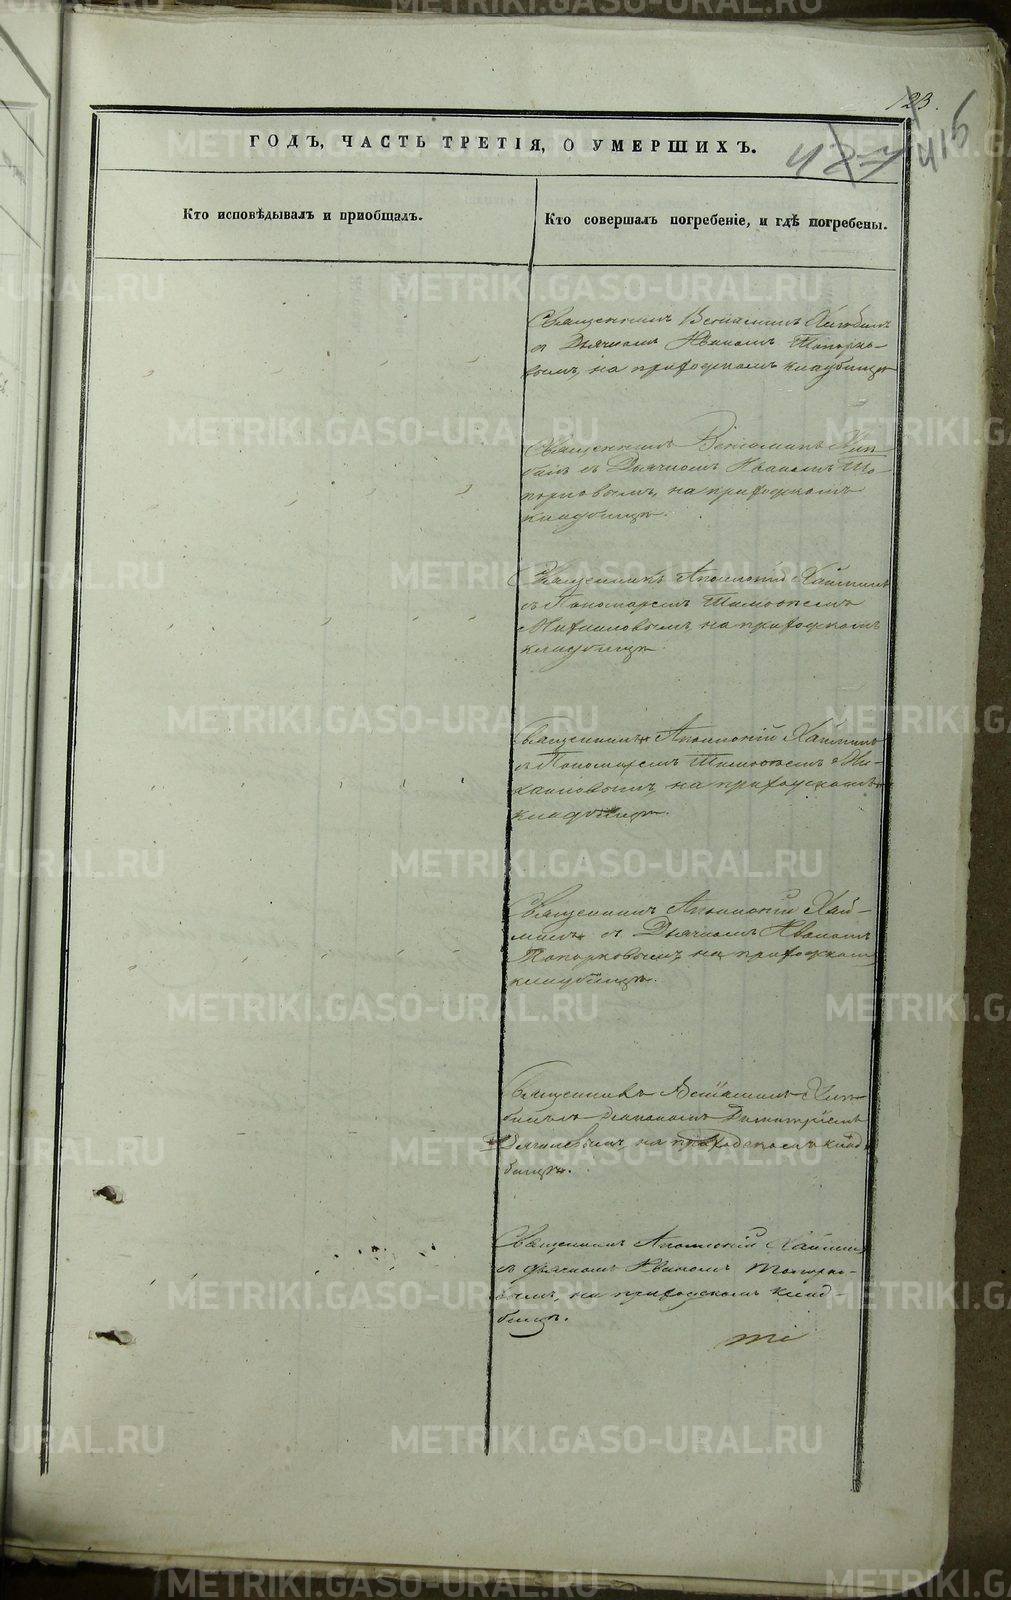 123.
415
ГОДЪ, ЧАСТЬ ТРЕТІЯ, О УМЕРШИХЪ.
Кто исповѣдывалъ и приобщалъ.
Кто совершалъ погребеніе, и гдѣ погребены.
Священникъ Веніаминъ
съ Дьячкомъ Иваномъ Топорко-
вымъ, на приходскомъ кладбищѣ
Священникъ Веніаминъ
съ Дьячкомъ Иваномъ То-
порковымъ, на приходскомъ
кладбищѣ.
Священникъ Аполлоній Хайминъ
съ Пономаремъ Тимоѳеемъ
Михайловымъ, на приходскомъ
кладбищѣ.
Священникъ Аполлоній Хайминъ
съ Пономаремъ Тимоѳеемъ Ми-
хайловымъ, на приходскомъ
кладбищѣ.
Священникъ Аполлоній Хай-
минъ съ Дьячкомъ Иваномъ
Топорковымъ, на приходскомъ
кладбищѣ.
Священникъ Веніаминъ
Діакономъ Димитріемъ
на приходскомъ клад-
бищѣ.
Священникъ Аполлоній Хайминъ
съ дьячкомъ Иваномъ Топорко-
вымъ, на приходскомъ клад-
бищѣ.
METRIKI.GASO-URAL.RU